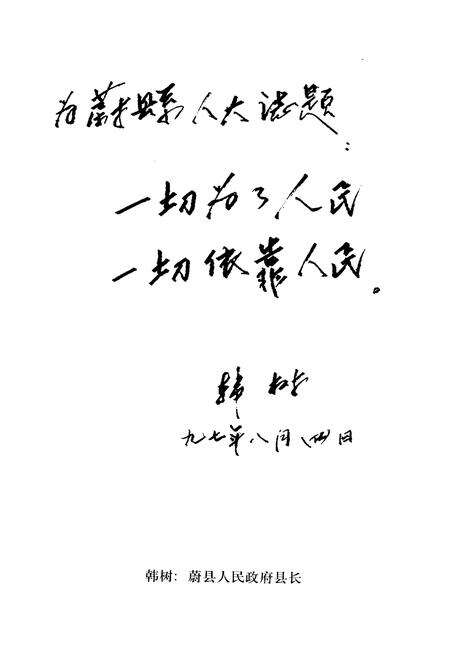 为蔚縣人大誌题：
一切为了人民
一切依靠人民。
韩树
九七年八月四日
韩树：蔚县人民政府县长